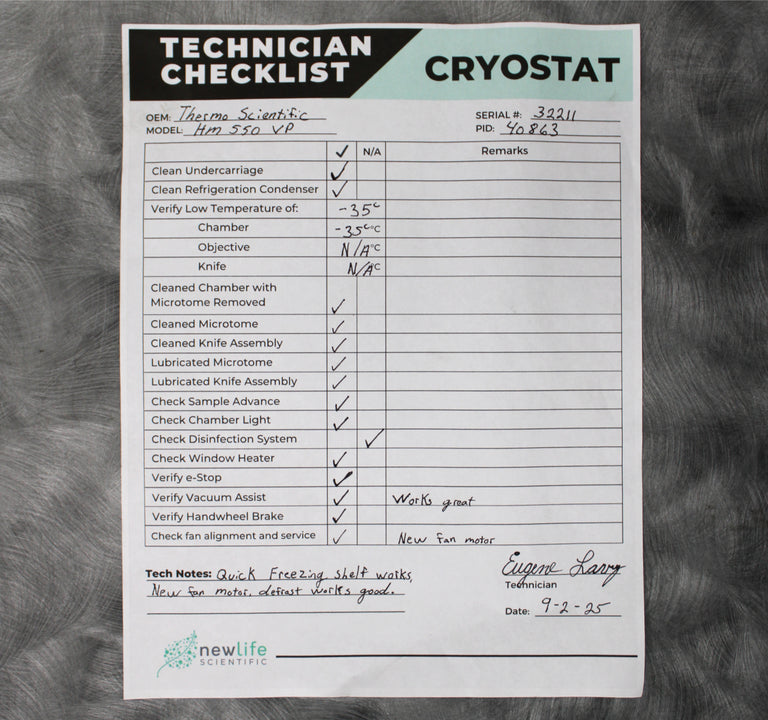 TECHNICIAN CHECKLIST
CRYOSTAT
OEM: Thermo Scientific
SERIAL #: 32211
MODEL: Hm 550 VP
PID: 40863
✓ N/A Remarks
Clean Undercarriage ✓
Clean Refrigeration Condenser ✓
Verify Low Temperature of: -35°
Chamber -35° °C
Objective N/A °C
Knife N/A °C
Cleaned Chamber with
Microtome Removed ✓
Cleaned Microtome ✓
Cleaned Knife Assembly ✓
Lubricated Microtome ✓
Lubricated Knife Assembly ✓
Check Sample Advance ✓
Check Chamber Light ✓
Check Disinfection System ✓
Check Window Heater ✓
Verify e-Stop ✓
Verify Vacuum Assist ✓ Works great
Verify Handwheel Brake ✓
Check fan alignment and service ✓ New fan motor
Tech Notes: Quick Freezing shelf works,
New fan motor, defrost works good.
Eugene
Technician
Date: 9-2-25
newlife
SCIENTIFIC